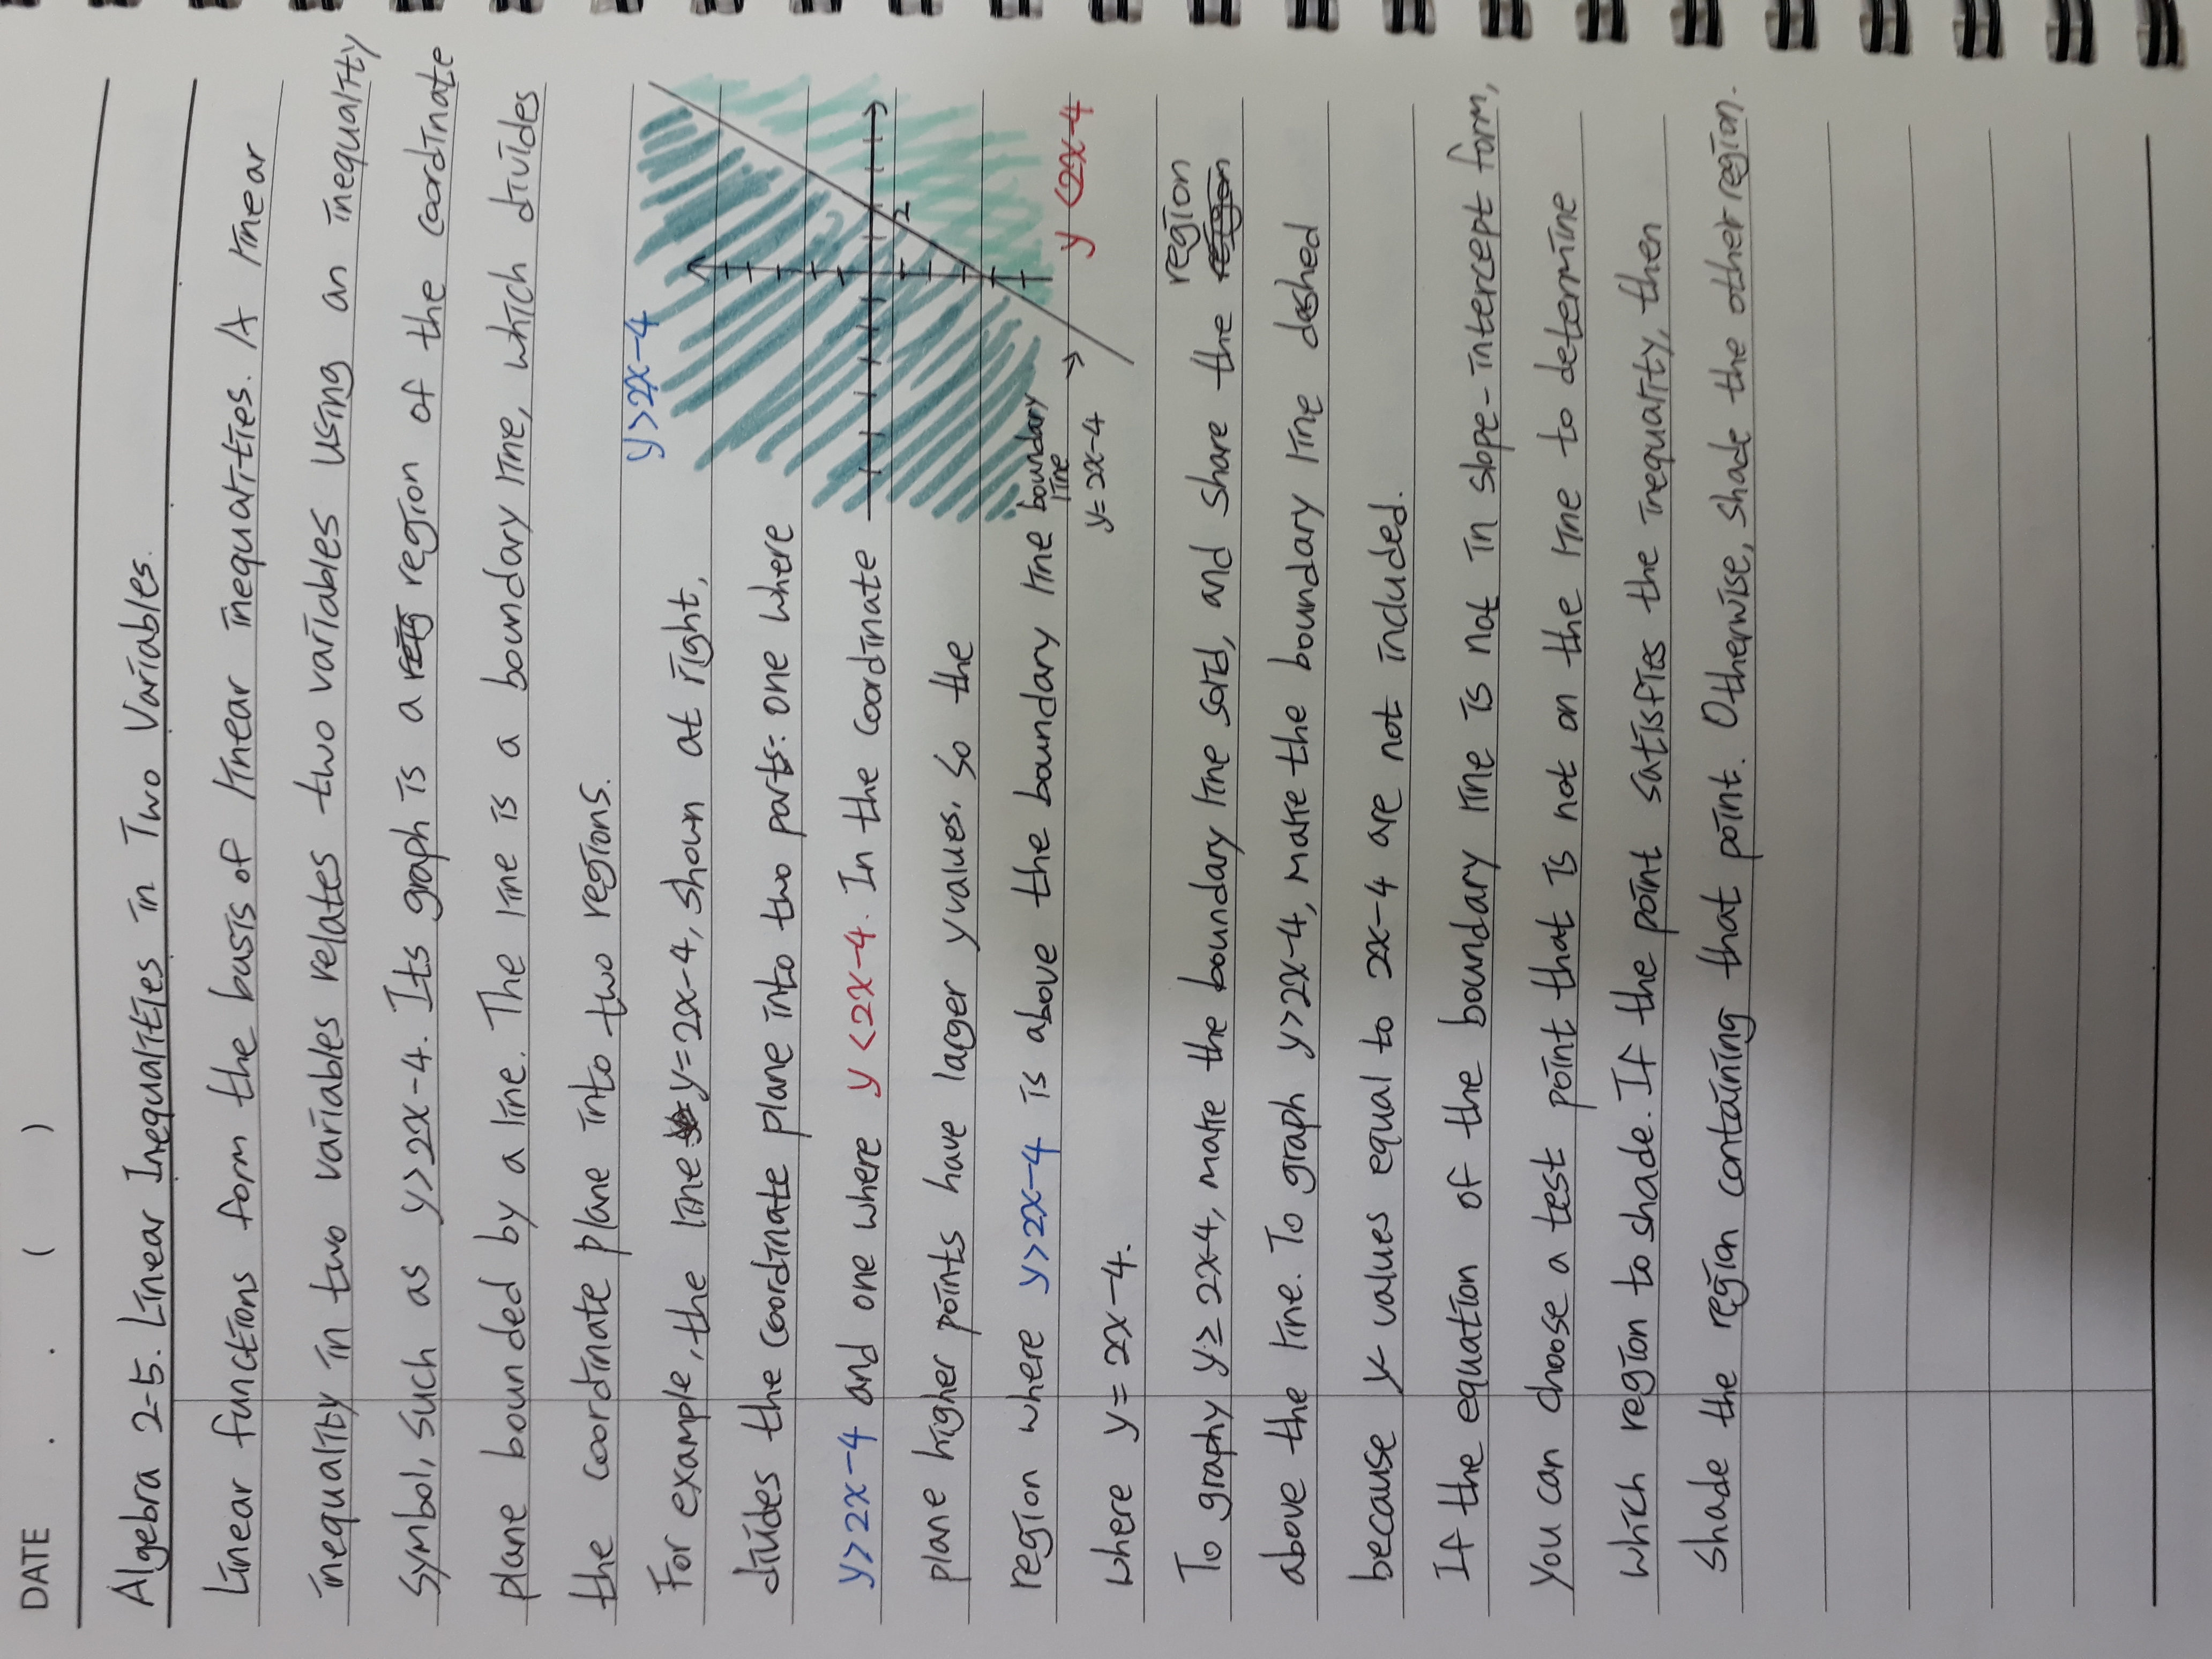 DATE . . ( )
Algebra 2-5. Linear Inequalities in Two Variables.
Linear functions form the basis of linear inequalities. A linear
inequality in two variables relates two variables using an inequality
Symbol, such as y>2x-4. Its graph is a region of the coordinate
plane bounded by a line. The line is a boundary line, which divides
the coordinate plane into two regions.
y>2x-4
For example, the line y=2x-4, shown at right,
divides the coordinate plane into two parts: one where
y>2x-4 and one where y<2x-4. In the coordinate
2
plane higher points have larger y values. So the
region where y>2x-4 is above the boundary line
boundary
line
y=2x-4
y<2x-4
where y=2x-4.
To graphy y≥2x-4, make the boundary line solid, and share the region
above the line. To graph y>2x-4, make the boundary line dashed
because y- values equal to 2x-4 are not included.
If the equation of the boundary line is not in slope-intercept form,
You can choose a test point that is not on the line to determine
which region to shade. If the point satisfies the inequality, then
shade the region containing that point. Otherwise, shade the other region.